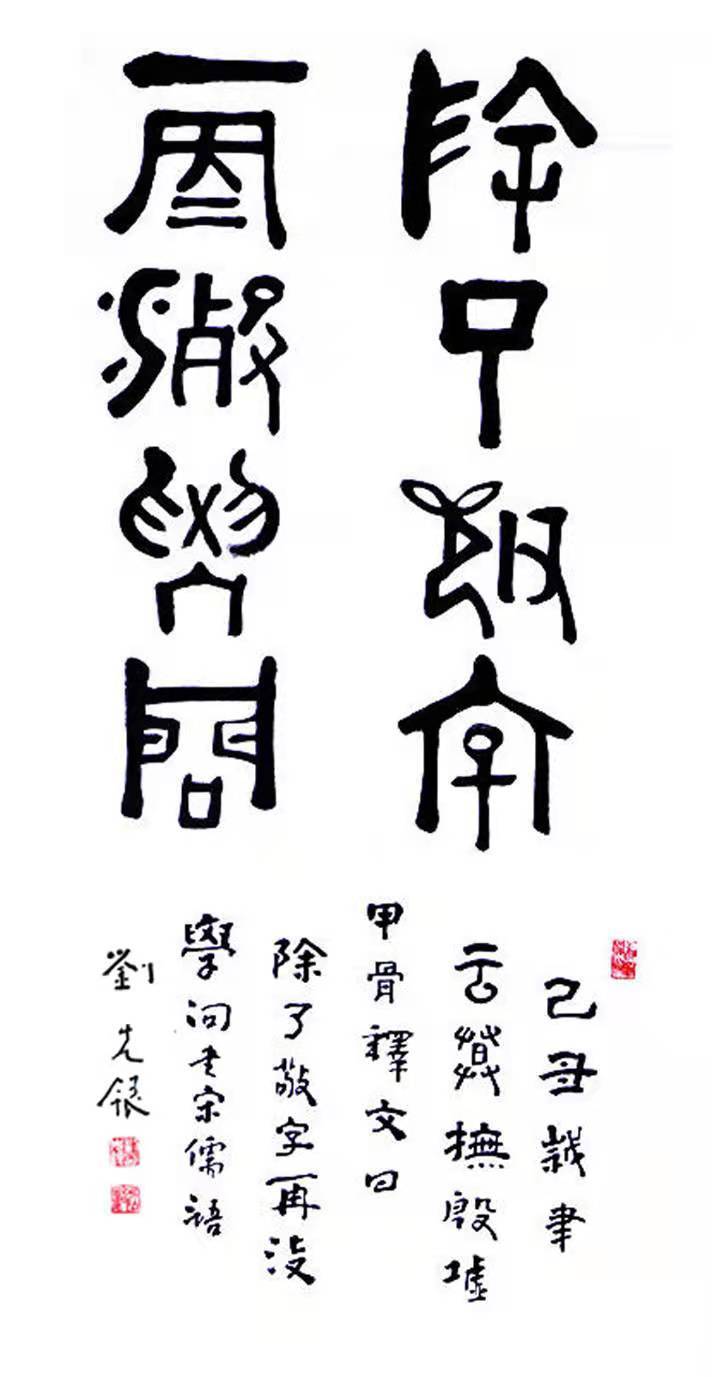 除了敬字
再沒學問
己丑歲
撫殷墟
甲骨釋文曰
除了敬字再沒
學问宋儒語
劉先銀